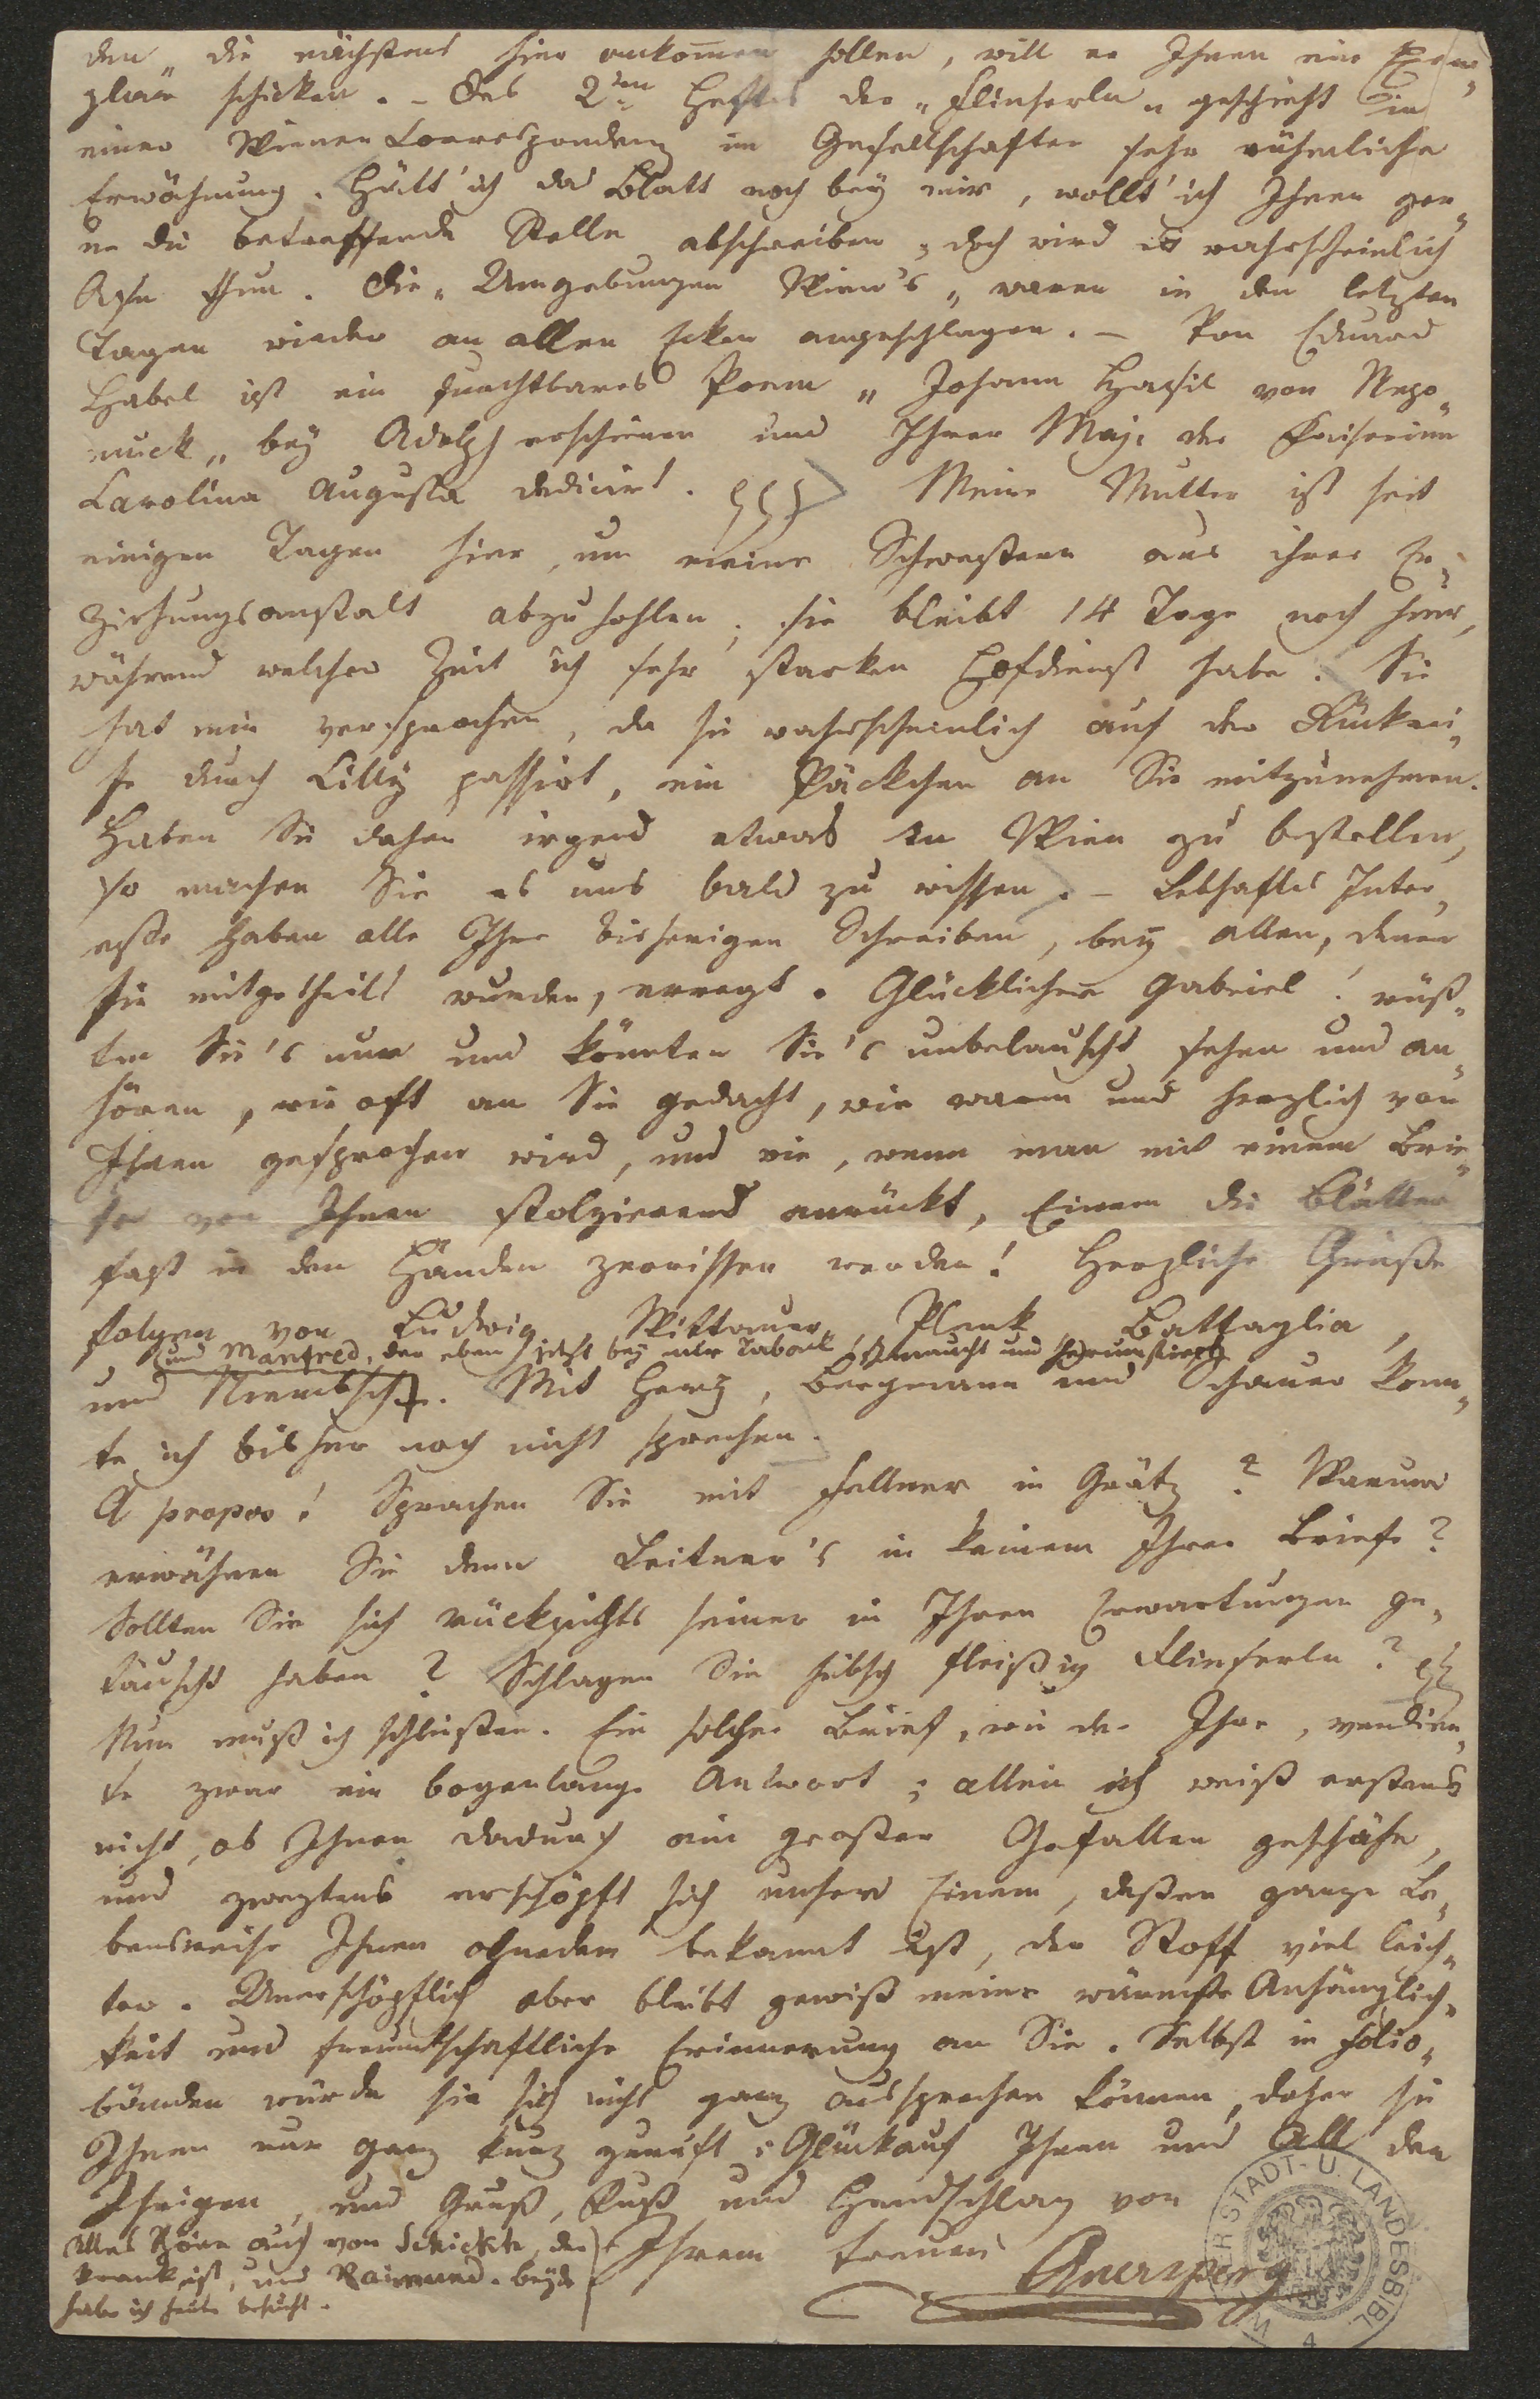 den, die nächstens hier ankommen sollen, will er Ihnen ein Exem„
plar schicken. – Des 2ten Heftes der „Flinserln„ geschieht in
einer Wiener Correspondenz im Gesellschafter sehr rühmliche
Erwähnung. Hätt' ich das Blatt noch bey mir, wollt' ich Ihnen ger„
ne die betreffende Stelle abschreiben, doch wird es wahrscheinlich
thun. Die „Umgebungen Wien's„ waren in den letzten
Tagen wieder an allen Ecken angeschlagen. – Von Eduard
Habel ist ein furchtbares Poem „Johann Hassil von Nepo„
muck„ bey Adolph erschienen und Ihrer Maj. der Kaiserinn
Carolina Augusta dedicirt. Meine Mutter ist seit
einigen Tagen hier, um meine Schwestern aus ihrer Er„
ziehungsanstalt abzuhohlen; sie bleibt 14 Tage noch hier,
während welcher Zeit ich sehr starken Hofdienst habe. Sie
hat mir versprochen, da sie wahrscheinlich auf der Rückrei„
se durch Cilly passirt, ein Päckchen an Sie mitzunehmen.
Haben Sie daher irgend etwas in Wien zu bestellen,
so machen Sie es uns bald zu wissen. – Lebhaftes Inter„
esse haben alle Ihre bisherigen Schreiben, bey allen, denen
sie mitgetheilt wurden, erregt. Glücklicher Gabriel! wüß„
ten Sie's nur und könnten Sie's unbelauscht sehen und an„
hören, wie oft an Sie gedacht, wie warm und herzlich von
Ihnen gesprochen wird, und wie, wenn man mit einem Brie„
fe von Ihnen stolzierend anrückt, Einem die Blätter
fast in den Händen zerrissen werden! Herzliche Grüße
folgen von Ludwig, Wittauer, Plenk, Battaglia,
(und Manfred, der eben jetzt bey mir Taback raucht und herumstiert)
und Niembsch. Mit Herz, Bergmann und Schauer konn„
te ich bisher noch nicht sprechen.
A propos! Sprachen Sie mit Fellner in Grätz? Warum
erwähnen Sie denn Leitner's in keinem Ihrer Briefe?
Sollten Sie sich rücksichts seiner in Ihren Erwartungen ge„
täuscht haben? Schlagen Sie hübsch fleißig Flinserln?
Nun muß ich schließen. Ein solcher Brief, wie der Ihre, verdien„
te zwar eine bogenlange Antwort; allein ich weiß erstens
nicht, ob Ihnen dadurch ein großer Gefallen geschähe,
und zweytens erschöpft sich unser Einem, dessen ganze Le„
bensweise Ihnen ohnedem bekannt ist, der Stoff viel leich„
ter. Unerschöpflich aber bleibt gewiß meine wärmste Anhänglich„
keit und freundschaftliche Erinnerung an Sie. Selbst in Folio„
bänden würde sie sich nicht ganz aussprechen können, daher sie
Ihnen nur ganz kurz zuruft: Glückauf Ihnen und All den
Ihrigen, und Gruß, Kuß und Handschlag von
Ihrem treuen
Auersperg
Alles Schöne auch von Schickh, der
krank ist, und Raimund. beyde
habe ich heute besucht.
WIENER STADT- U. LANDESBIBL.
4